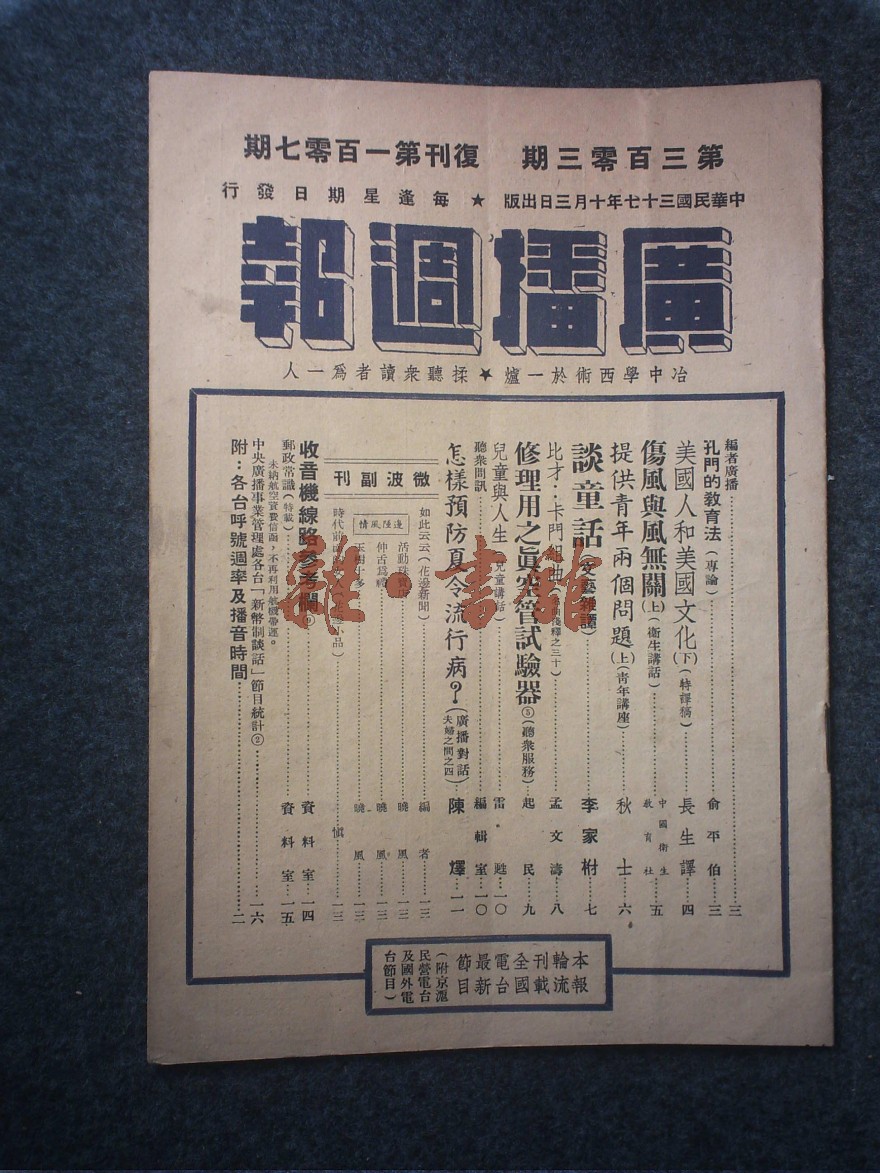 第三百零三期　復刊第一百零七期
中華民國三十七年十月三日出版 ★ 每逢星期日發行
廣播週報
冶中學西術於一爐 ★ 揉聽衆讀者爲一人
編者廣播……三
孔門的教育法（專論）……俞平伯…三
美國人和美國文化（下）（特譯稿）……長生譯…四
傷風與風無關（上）（衞生講話）……中國衞生教育社…五
提供青年兩個問題（上）（青年講座）……秋士…六
談童話（文藝雜譚）……李家樹…七
比才：卡門組曲（淺釋之三十）……孟文濤…八
修理用之眞空管試驗器⑤（聽衆服務）…起民…九
兒童與人生（兒童講話）……雷甦…一〇
聽衆問訊……編輯室…一〇
怎樣預防夏令流行病？（廣播對話 夫婦之間之四）…陳燡…一一
微波副刊
如此云云（花邊新聞）……編者…一三
邊陲風情
活動珠寶店……曉風…一三
仲舌爲禮……曉風…一三
玉樹十多……曉風…一三
時代前（小品）……愼…一三
收音機線路參考欄……資料室…一四
郵政常識（特載）……資料室…一五
未納航空資費信函，不再利用航機帶運。
中央廣播事業管理處各台「新幣制談話」節目統計②……一六
附：各台呼號週率及播音時間……二
本報輪流刊載全國電台最新節目
（附京滬民營電台及國外電台節目）
雜·書館